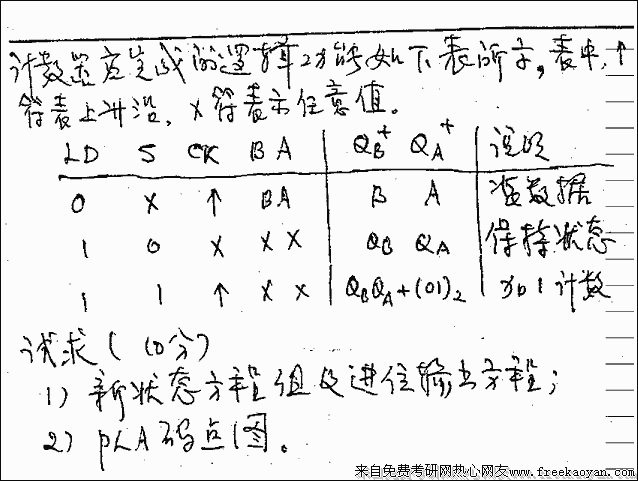 计数器应完成的逻辑功能如下表所示。表中,↑
符表上升沿,×符表示任意值。
LD S CK B A QB⁺ QA⁺ 说明
0 × ↑ BA B A 置数据
1 0 × × × QB QA 保持状态
1 1 ↑ × × QBQA+(01)₂ 加1计数
试求(10分)
1) 新状态方程组及进位输出方程;
2) PLA码点图。
来自免费考研网热心网友www.freekaoyan.com